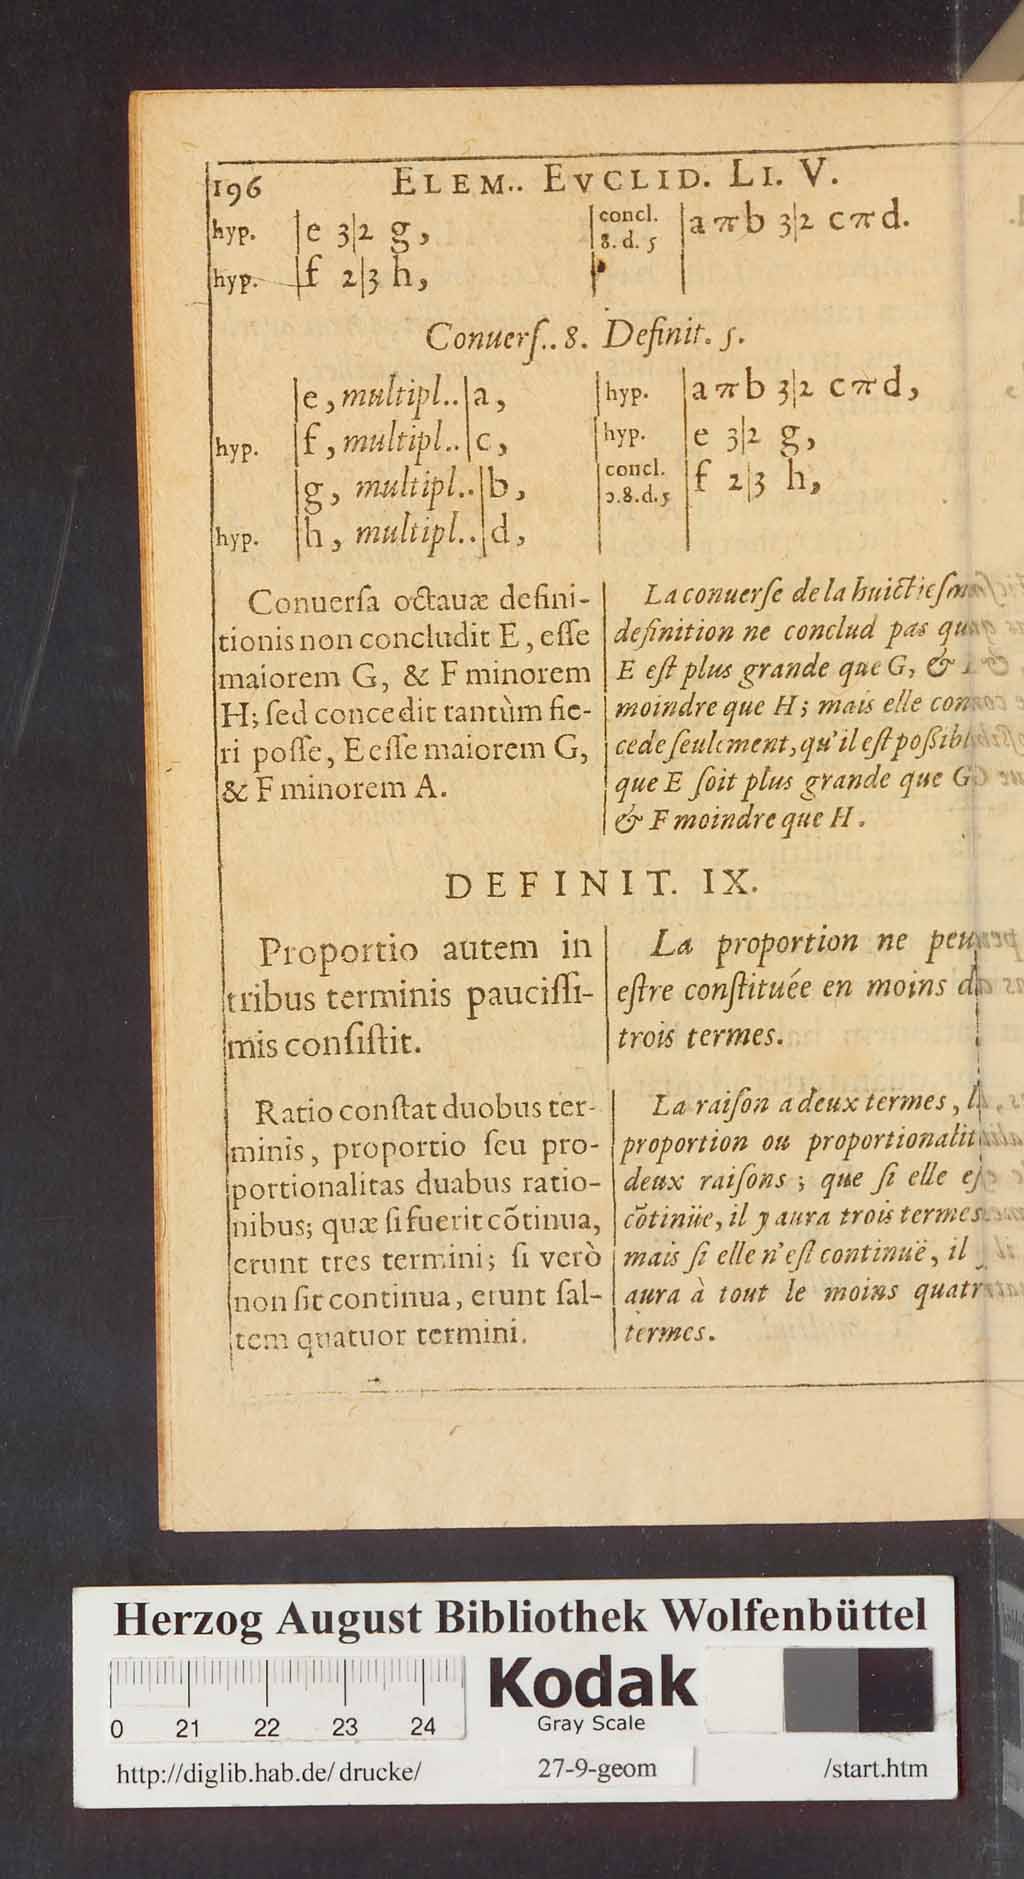 196 ELEM.. EVCLID. LI. V.
hyp. e 3|2 g, concl. 8. d. 5 a π b 3|2 c π d.
hyp. f 2|3 h,
Conuerſ.. 8. Definit. 5.
e, multipl.. a, hyp. a π b 3|2 c π d,
hyp. f, multipl.. c, hyp. e 3|2 g,
g, multipl.. b, concl. ɔ.8.d.5 f 2|3 h,
hyp. h, multipl.. d,
Conuerſa octauæ defini-
tionis non concludit E, eſſe
maiorem G, & F minorem
H; ſed concedit tantùm fie-
ri poſſe, E eſſe maiorem G,
& F minorem A.
La conuerſe de la huictieſm
definition ne conclud pas qu
E eſt plus grande que G, &
moindre que H; mais elle con
cede ſeulement, qu'il eſt poßibl
que E ſoit plus grande que G
& F moindre que H.
DEFINIT. IX.
Proportio autem in
tribus terminis pauciſſi-
mis conſiſtit.
La proportion ne peu
eſtre conſtituée en moins d
trois termes.
Ratio conſtat duobus ter-
minis, proportio ſeu pro-
portionalitas duabus ratio-
nibus; quæ ſi fuerit cõtinua,
erunt tres termini; ſi verò
non ſit continua, erunt ſal-
tem quatuor termini.
La raiſon a deux termes, l
proportion ou proportionalit
deux raiſons; que ſi elle eſ
cõtinüe, il y aura trois termes
mais ſi elle n'eſt continuë, il
aura à tout le moins quatr
termes.
Herzog August Bibliothek Wolfenbüttel
0 21 22 23 24
Kodak
Gray Scale
http://diglib.hab.de/drucke/ 27-9-geom /start.htm